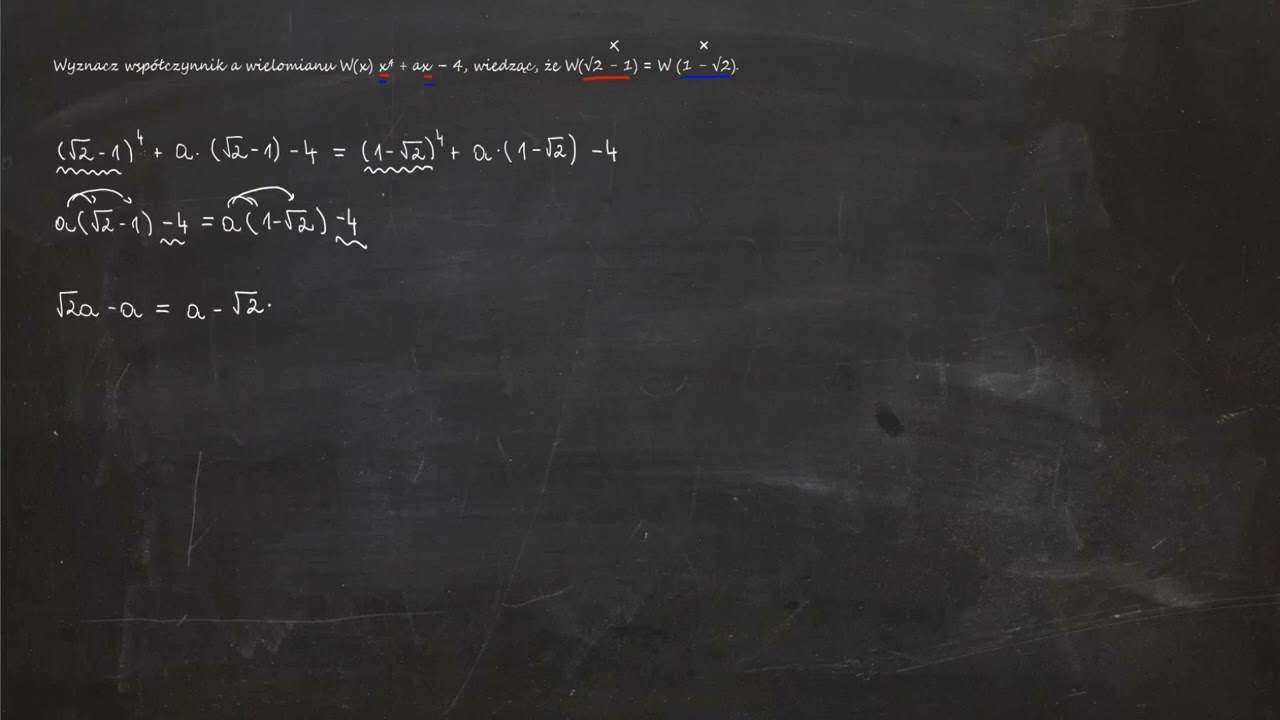 x x
Wyznacz współczynnik a wielomianu W(x) x⁴ + ax - 4, wiedząc, że W(√2 - 1) = W (1 - √2).
(√2-1)⁴ + a·(√2-1) -4 = (1-√2)⁴ + a·(1-√2) -4
a(√2-1) -4 = a(1-√2) -4
√2a -a = a - √2·